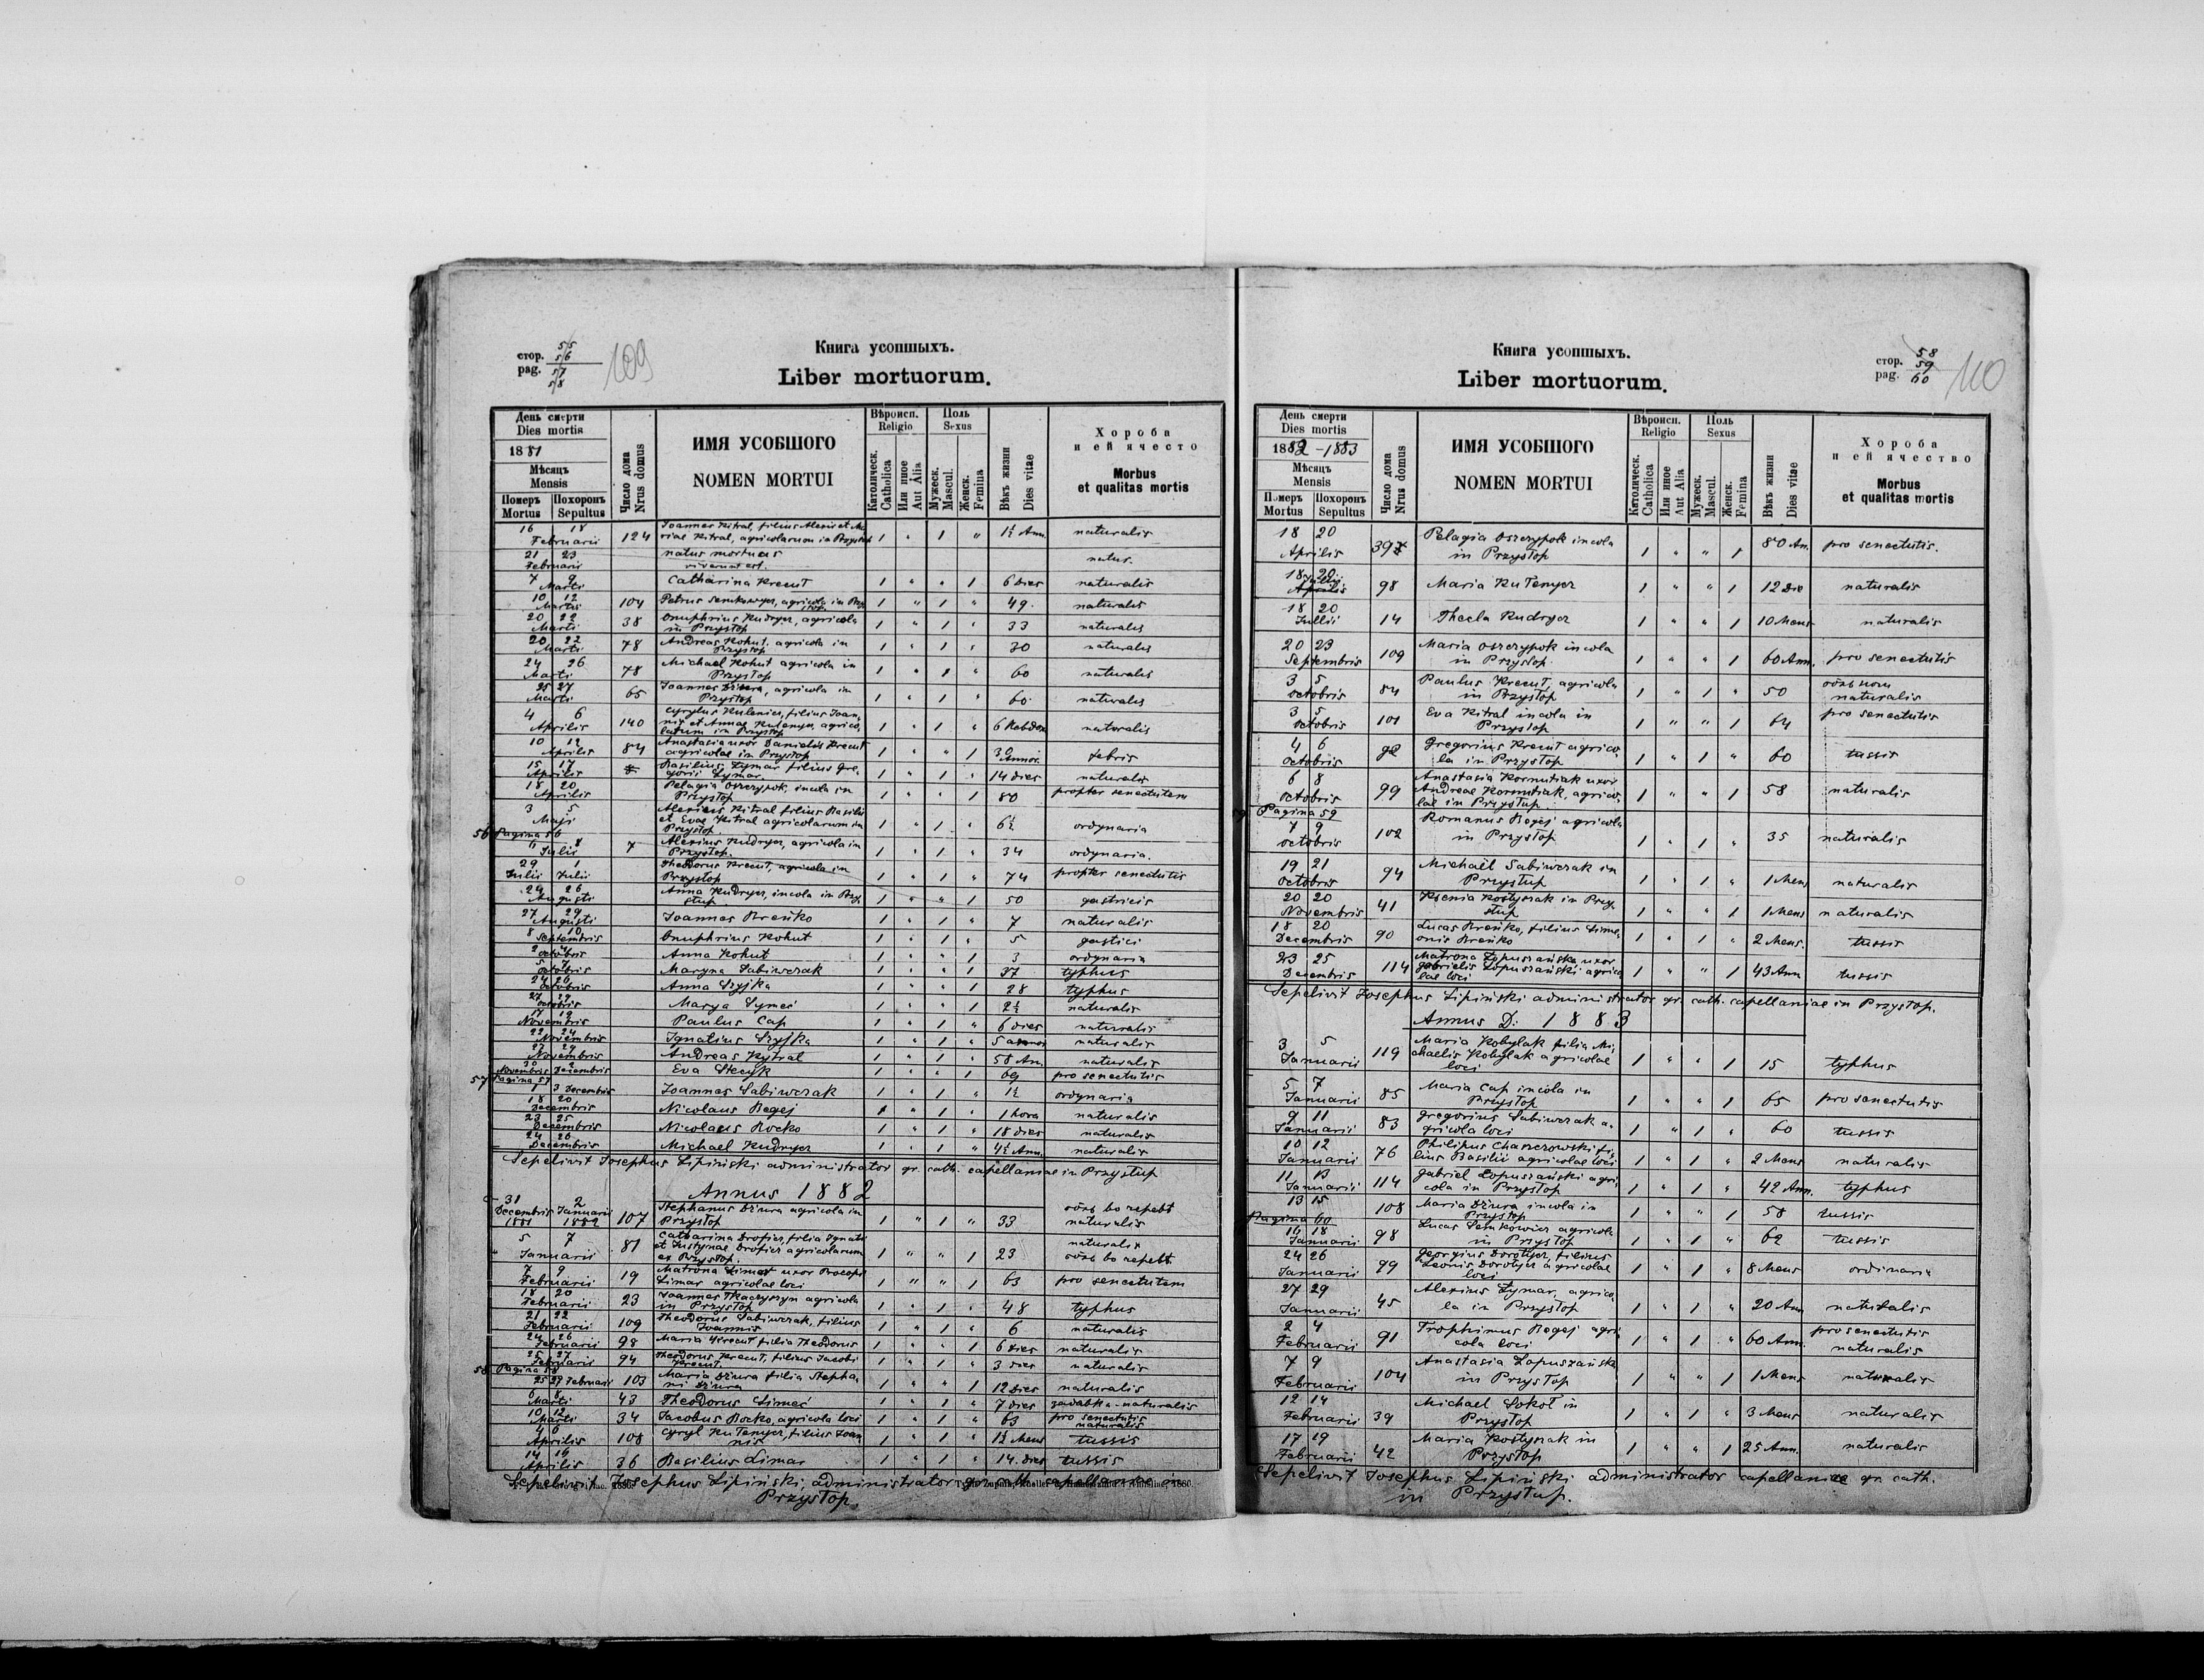 стор. 55 56
pag. 57 58
109
Книга усопшыхъ.
Liber mortuorum.
День смерти
Dies mortis
1881
Мѣсяцъ
Mensis
Помeръ Похоронъ
Mortus Sepultus
Число дома
Nrus domus
ИМЯ УСОБШОГО
NOMEN MORTUI
Вѣроисп.
Religio
Католическ.
Catholica
Или иное
Aut Alia
Поль
Sexus
Мужеск.
Mascul.
Женск.
Femina
Вѣкъ жизни
Dies vitae
Хороба
и ей ячесто
Morbus
et qualitas mortis
16 18 Februarii 124 Joannes Kitral, filius Alexii et Ma-
riae Kitral, agricolarum in Przystop 1 " 1 " 1½ Ann. naturalis
21 23 Februarii natus mortuus natur.
7 9 Marti Catharina Krecut 1 " " 1 6 dies naturalis
10 12 Martii 104 Petrus Semkowycz, agricola in Przystop 1 " 1 " 49 naturalis
20 22 Marti 38 Onuphrius Kudrycz, agricola
in Przystop 1 " 1 " 33 naturalis
20 22 Marti 78 Andreas Kohut, agricola in
Przystop 1 " 1 " 30 naturalis
24 26 Marti 78 Michael Kohut agricola in
Przystop 1 " 1 " 60 naturalis
25 27 Marti 65 Joannes Dziura, agricola in
Przystop 1 " 1 " 60 naturalis
4 6 Aprilis 140 Cyrylus Kulenicz, filius Joan-
nis et Annae Kulenycz agrico-
larum in Przystop 1 " 1 " 6 Hebdom naturalis
10 12 Aprilis 84 Anastasia uxor Danielis Krecut
agricolae in Przystop 1 " " 1 30 Annor. febris
15 17 Aprilis Basilius Lymar filius Gre-
gorii Lymar 1 " 1 " 14 dies naturalis
18 20 Aprilis Pelagia Oszczypok, incola in
Przystop 1 " " 1 80 propter senectutem
3 5 Maji Alexius Kitral filius Basilii
et Evae Kitral agricolarum in
Przystop 1 " 1 " 6½ ordynaria
56 Pagina 56
6 8 Julii 7 Alexius Kudrycz, agricola in
Przystop. 1 " 1 " 34 ordynaria.
29 1 Julii Julii Theodorus Krecut, agricola in
Przystop 1 " 1 " 74 propter senectutis
24 26 Augusti Anna Kudrycz, incola in Przy-
stup 1 " " 1 50 gastricis
27 29 Augusti Joannes Breńko 1 " 1 " 7 naturalis
8 10 Septembris Onuphrius Kohut 1 " 1 " 5 gastici
2 4 Octobris Anna Kohut 1 " " 1 3 ordynaria
5 7 Octobris Maryna Sabiwczak 1 " " 1 37 typhus
24 26 Octobris Anna Szyjka 1 " " 1 28 typhus
27 29 Octobris Marya Symeć 1 " " 1 2½ naturalis
17 19 Novembris Paulus Cap 1 " 1 " 6 dies naturalis
22 24 Novembris Ignatius Szyjka 1 " 1 " 5 annos naturalis
27 29 Novembris Andreas Kytral 1 " 1 " 58 Ann. naturalis
30 Novembris Decembris Eva Stecyk 1 " " 1 69 pro senectutis
57 Pagina 57
1 3 Decembris Joannes Sabiwczak 1 " 1 " 1½ ordynaria
18 20 Decembris Nicolaus Begej 1 " 1 " 1 hora naturalis
23 25 Decembris Nicolaus Boćko 1 " 1 " 18 dies naturalis
24 26 Decembris Michael Kudrycz 1 " 1 " 4½ Ann. naturalis
Sepelivit Josephus Lipiński administrator gr. cath. capellaniae in Przystup
Annus 1882
31 2 Decembris Januarii 1881 1882 107 Stephanus Dziura agricola in
Przystop 1 " 1 " 33 naturalis
5 7 Januarii 81 Catharina Droficz, filia Ignatii
et Justynae Droficz agricolarum
ex Przystop. 1 " " 1 23 naturalis
7 9 Februarii 19 Matrona Limar uxor Procopi
Limar agricolae loci 1 " " 1 63 pro senectutem
18 20 Februarii 23 Joannes Tkaczyszyn agricola
in Przystop 1 " 1 " 48 typhus
21 22 Februarii 109 Theodorus Sabiwczak, filius
Joannis 1 " 1 " 6 naturalis
24 26 Februarii 98 Maria Krecut filia Theodorus 1 " " 1 6 dies naturalis
25 27 Februarii 94 Theodorus Krecut, filius Jacobi
Krecut 1 " 1 " 3 dies naturalis
58 Pagina 58
25 27 Februarii 103 Maria Dziura filia Stepha-
ni Dziura 1 " " 1 12 dies naturalis
6 8 Marti 43 Theodorus Simeć 1 " 1 " 7 dies naturalis
10 12 Marti 34 Jacobus Boćko, agricola loci 1 " 1 " 63 pro senectutis naturalis
4 6 Aprilis 108 Cyryl Kutenycz, filius Joan-
nis 1 " 1 " 1½ Mens tussis
14 16 Aprilis 36 Basilius Limar 1 " 1 " 14 dies tussis
Sepelivit Josephus Lipiński, administrator gr. cath. capellaniae in
Przystop.
стор. 58 59
pag. 60
110
Книга усопшыхъ.
Liber mortuorum.
День смерти
Dies mortis
1882-1883
Мѣсяцъ
Mensis
Померъ Похоронъ
Mortus Sepultus
Число дома
Nrus domus
ИМЯ УСОБШОГО
NOMEN MORTUI
Вѣроисп.
Religio
Католическ.
Catholica
Или иное
Aut Alia
Поль
Sexus
Мужеск.
Mascul.
Женск.
Femina
Вѣкъ жизни
Dies vitae
Хороба
и ей ячество
Morbus
et qualitas mortis
18 20 Aprilis 397 Pelagia Oszczypok incola
in Przystop 1 " " 1 80 An. pro senectutis.
18 20 Aprilis 98 Maria Kutenycz 1 " " 1 12 Die naturalis
18 20 Jullii 14 Thecla Kudrycz 1 " " 1 10 Mens naturalis
20 23 Septembris 109 Maria Oszczypok incola
in Przystop 1 " " 1 60 Ann. pro senectutis
3 5 Octobris 84 Paulus Krecut, agricola
in Przystop 1 " 1 " 50 naturalis
3 5 Octobris 101 Eva Kitral incola in
Przystop 1 " " 1 64 pro senectutis
4 6 Octobris 92 Gregorius Krecut agrico-
la in Przystop 1 " 1 " 60 tussis
6 8 Octobris 99 Anastasia Kormutiak uxor
Andreae Kormutiak, agrico-
lae in Przystup 1 " " 1 58 naturalis
Pagina 59
7 9 Octobris 102 Romanus Begej agricola
in Przystop 1 " 1 " 35 naturalis
19 21 Octobris 94 Michael Sabiwczak in
Przystup 1 " 1 " 1 Mens naturalis
20 20 Novembris 41 Ksenia Kostyszak in Przy-
stup 1 " " 1 1 Mens naturalis
18 20 Decembris 90 Lucas Breńko, filius Sime-
onis Breńko 1 " 1 " 2 Mens. tussis
23 25 Decembris 114 Matrona Łopuszańska uxor
Gabrielis Łopuszański agrico-
lae loci 1 " " 1 43 Ann tussis
Sepelivit Josephus Lipiński administrator gr. cath. capellaniae in Przystop.
Annus D: 1883
3 5 Januarii 119 Maria Kobylak filia Mi-
chaelis Kobylak agricolae
loci 1 " " 1 15 typhus
5 7 Januarii 85 Maria Cap incola in
Przystop 1 " " 1 65 pro senectutis
9 11 Januarii 83 Gregorius Sabiwczak a-
gricola loci 1 " 1 " 60 tussis
10 12 Januarii 76 Philipus Chaszczowski fi-
lius Basilii agricolae loci 1 " 1 " 2 Mens naturalis
11 13 Januarii 114 Gabriel Łopuszański agri-
cola in Przystop 1 " 1 " 42 Ann. typhus
13 15 108 Maria Dziura incola in
Przystop 1 " " 1 58 tussis
Pagina 60
16 18 Januarii 98 Lucas Semkowicz agricola
in Przystop 1 " 1 " 62 tussis
24 26 Januarii 99 Georgius Dorotycz, filius
Leonis Dorotycz agricolae
loci 1 " 1 " 8 Mens ordinaria
27 29 Januarii 45 Alexius Lymar, agrico-
la in Przystop 1 " 1 " 20 Ann naturalis
2 4 Februarii 91 Trophimus Begej agri-
cola loci 1 " 1 " 60 Ann. pro senectutis
naturalis
7 9 Februarii 104 Anastasia Łopuszańska
in Przystop 1 " " 1 1 Mens naturalis
12 14 Februarii 39 Michael Sokoł in
Przystop 1 " 1 " 3 Mens naturalis
17 19 Februarii 42 Maria Kostyszak in
Przystop 1 " " 1 25 Ann. naturalis
Sepelivit Josephus Lipiński administrator capellaniae gr. cath.
in Przystup.